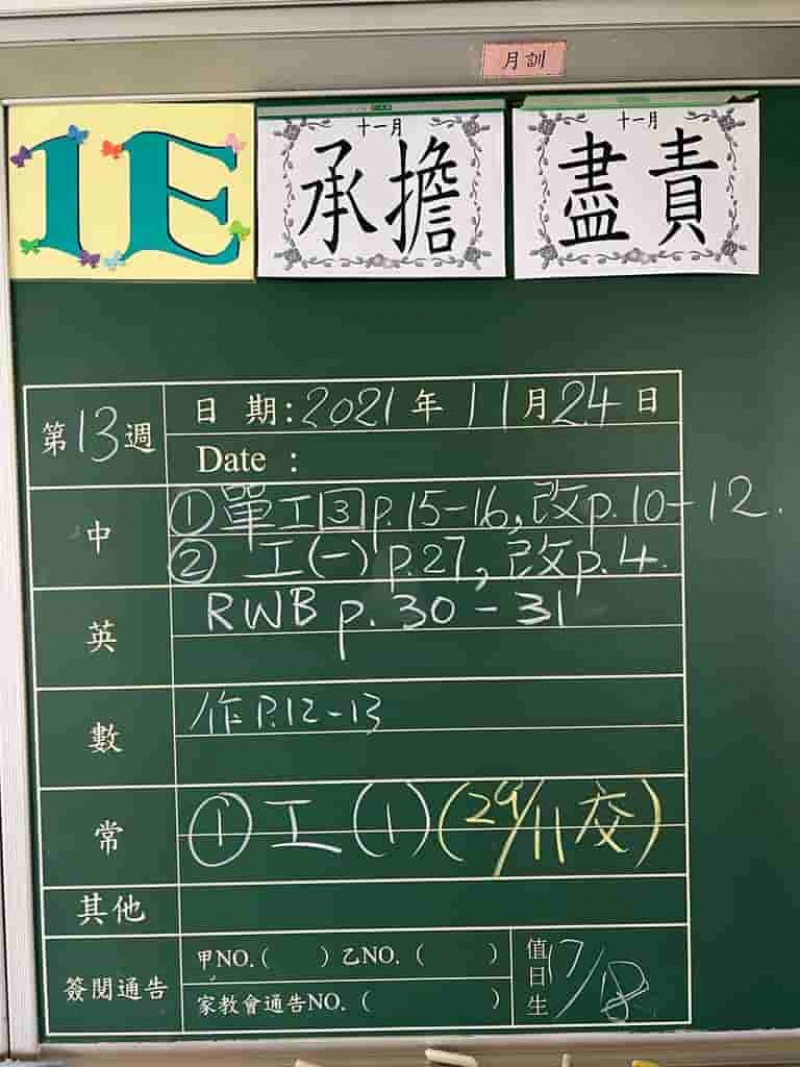 月訓
1E
十一月
承擔
十一月
盡責
第13週
日 期:2021年11月24日
Date :
中
①單工[3]p.15-16,改p.10-12.
② 工(一)p.27,改p.4.
英
RWB p.30-31
數
作P.12-13
常
①工(1)(29/11交)
其他
簽閱通告
甲NO.( )乙NO.( )
家教會通告NO.( )
值日生
17/18